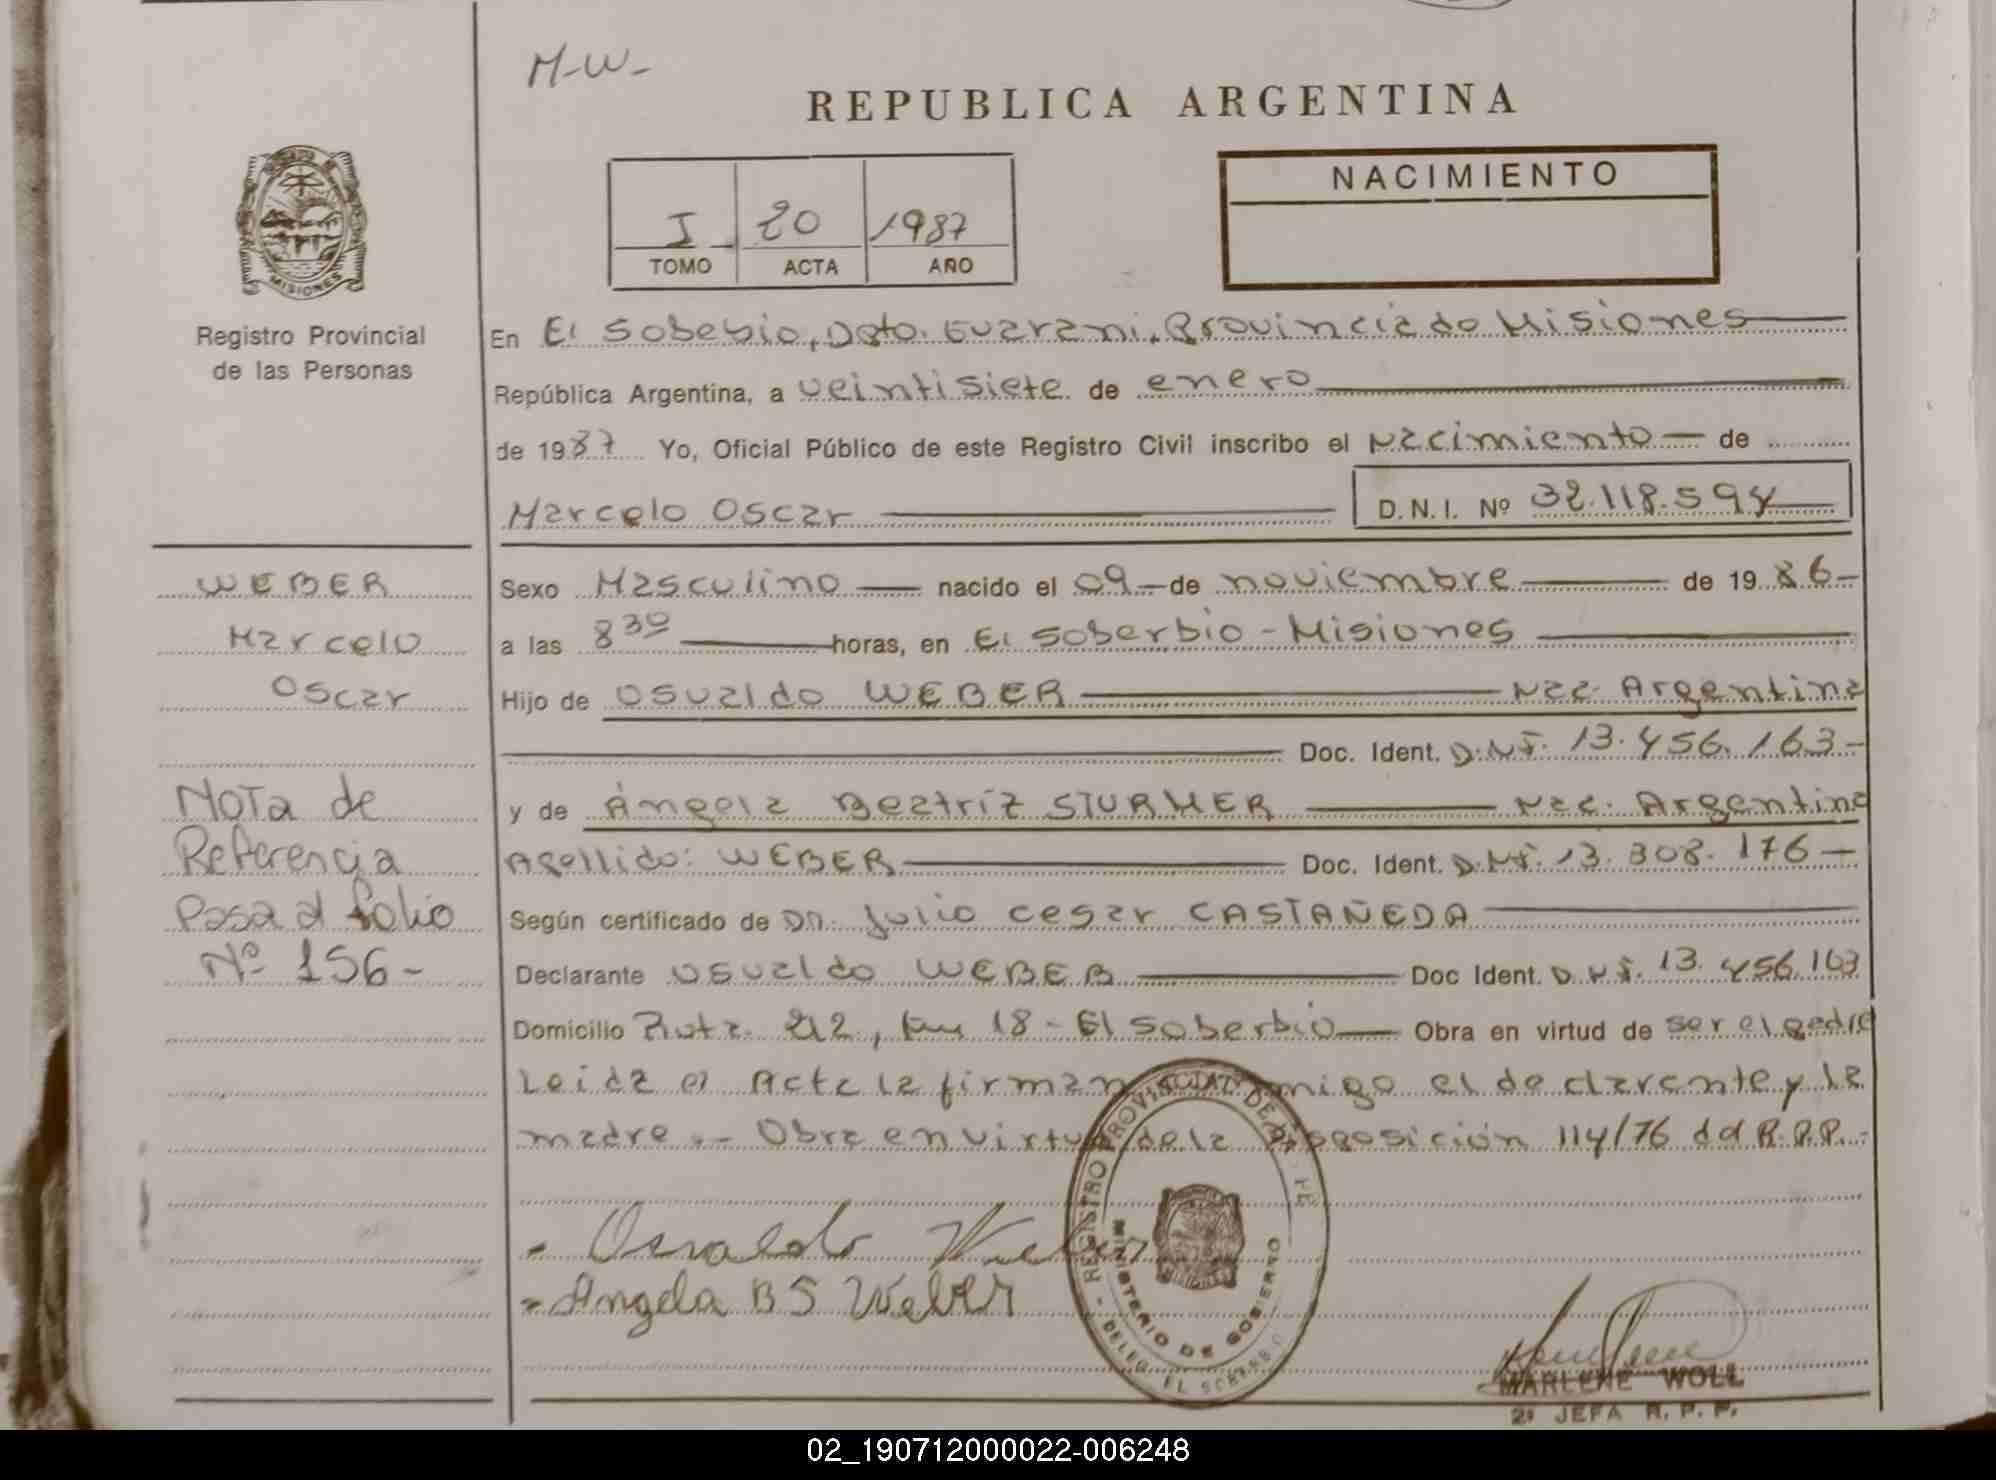 M-W-
REPUBLICA ARGENTINA
NACIMIENTO
I 20 1987
TOMO ACTA AÑO
MISIONES
Registro Provincial
de las Personas
En El Soberbio, Dpto. Guarani. Provincia de Misiones
República Argentina, a veintisiete de enero
de 1987 Yo, Oficial Público de este Registro Civil inscribo el Nacimiento de
Marcelo Oscar D.N.I. Nº 32.118.594
WEBER
Marcelo
Oscar
Nota de
Referencia
Pasa al folio
Nº 156-
Sexo Masculino nacido el 09 de noviembre de 1986-
a las 8 30 horas, en El Soberbio - Misiones
Hijo de Osvaldo WEBER Nac. Argentina
Doc. Ident. D.N.I. 13.456.163-
y de Ángela Beatríz STURMER Nac. Argentina
Apellido: WEBER Doc. Ident. D.N.I. 13.808.176-
Según certificado de Dr. Julio Cesar CASTAÑEDA
Declarante Osvaldo WEBER Doc Ident. D.N.I. 13.456.163
Domicilio Ruta 212, Km 18 - El Soberbio Obra en virtud de ser el padre
Leida el Acta la firman migo el declarante y la
madre.- Obra en virtud de la Disposición 114/76 del R.P.P.-
Osvaldo Weber
Angela B S Weber
REGISTRO PROVINCIAL DE LAS PE
MINISTERIO DE GOBIERNO
DELEG. EL SOBERBIO
MARLENE WOLL
2ª JEFA R. P. P.
02_190712000022-006248